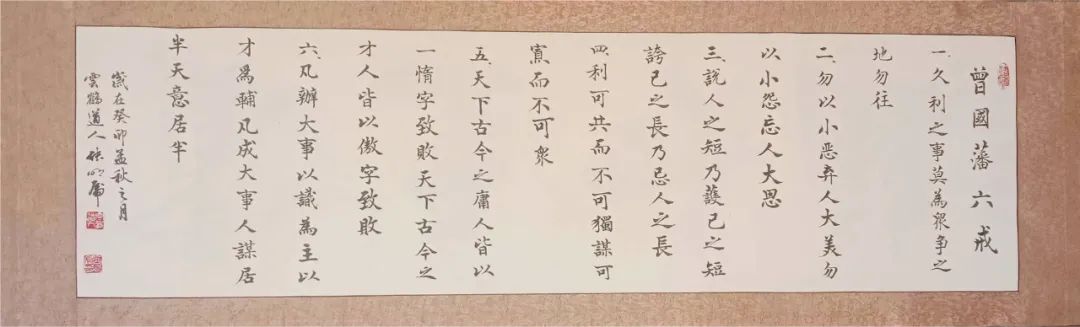 曾國藩六戒
一、久利之事莫為眾争之
地勿往
二、勿以小恶弃人大美勿
以小怨忘人大恩
三、說人之短乃護己之短
誇己之長乃忌人之長
四、利可共而不可獨謀可
寡而不可衆
五、天下古今之庸人皆以
一惰字致敗天下古今之
才人皆以傲字致敗
六、凡辦大事以識為主以
才為輔凡成大事人謀居
半天意居半
歲在癸卯孟秋之月
雲鶴道人